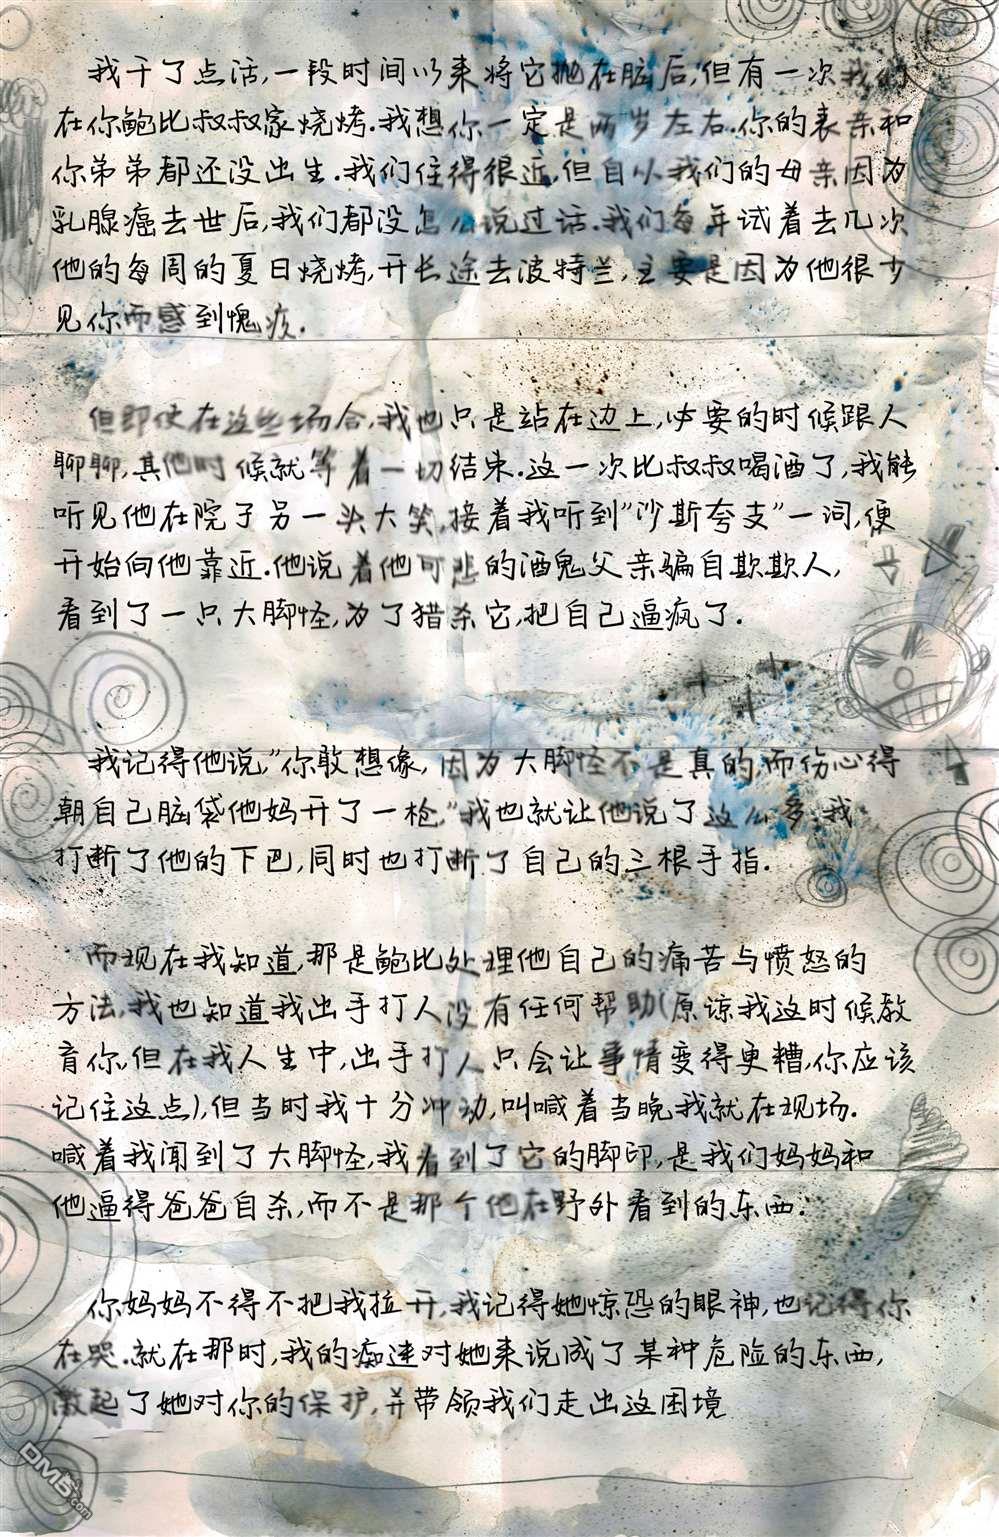 我干了点活,一段时间以来将它抛在脑后,但有一次我们
在你鲍比叔叔家烧烤.我想你一定是两岁左右.你的表亲和
你弟弟都还没出生.我们住得很近,但自从我们的母亲因为
乳腺癌去世后,我们都没怎么说过话.我们每年试着去几次
他的每周的夏日烧烤,开长途去波特兰,主要是因为他很少
见你而感到愧疚.
但即使在这些场合,我也只是站在边上,必要的时候跟人
聊聊,其他时候就等着一切结束.这一次比叔叔喝酒了,我能
听见他在院子另一头大笑,接着我听到"沙斯夸支"一词,便
开始向他靠近.他说着他可悲的酒鬼父亲骗自欺欺人,
看到了一只大脚怪,为了猎杀它,把自己逼疯了.
我记得他说,"你敢想像,因为大脚怪不是真的,而伤心得
朝自己脑袋他妈开了一枪."我也就让他说了这么多.我
打断了他的下巴,同时也打断了自己的三根手指.
而现在我知道,那是鲍比处理他自己的痛苦与愤怒的
方法,我也知道我出手打人没有任何帮助(原谅我这时候教
育你,但在我人生中,出手打人只会让事情变得更糟,你应该
记住这点),但当时我十分冲动,叫喊着当晚我就在现场.
喊着我闻到了大脚怪,我看到了它的脚印,是我们妈妈和
他逼得爸爸自杀,而不是那个他在野外看到的东西.
你妈妈不得不把我拉开,我记得她惊恐的眼神,也记得你
在哭.就在那时,我的痴迷对她来说成了某种危险的东西,
激起了她对你的保护,并带领我们走出这困境
DM5.com